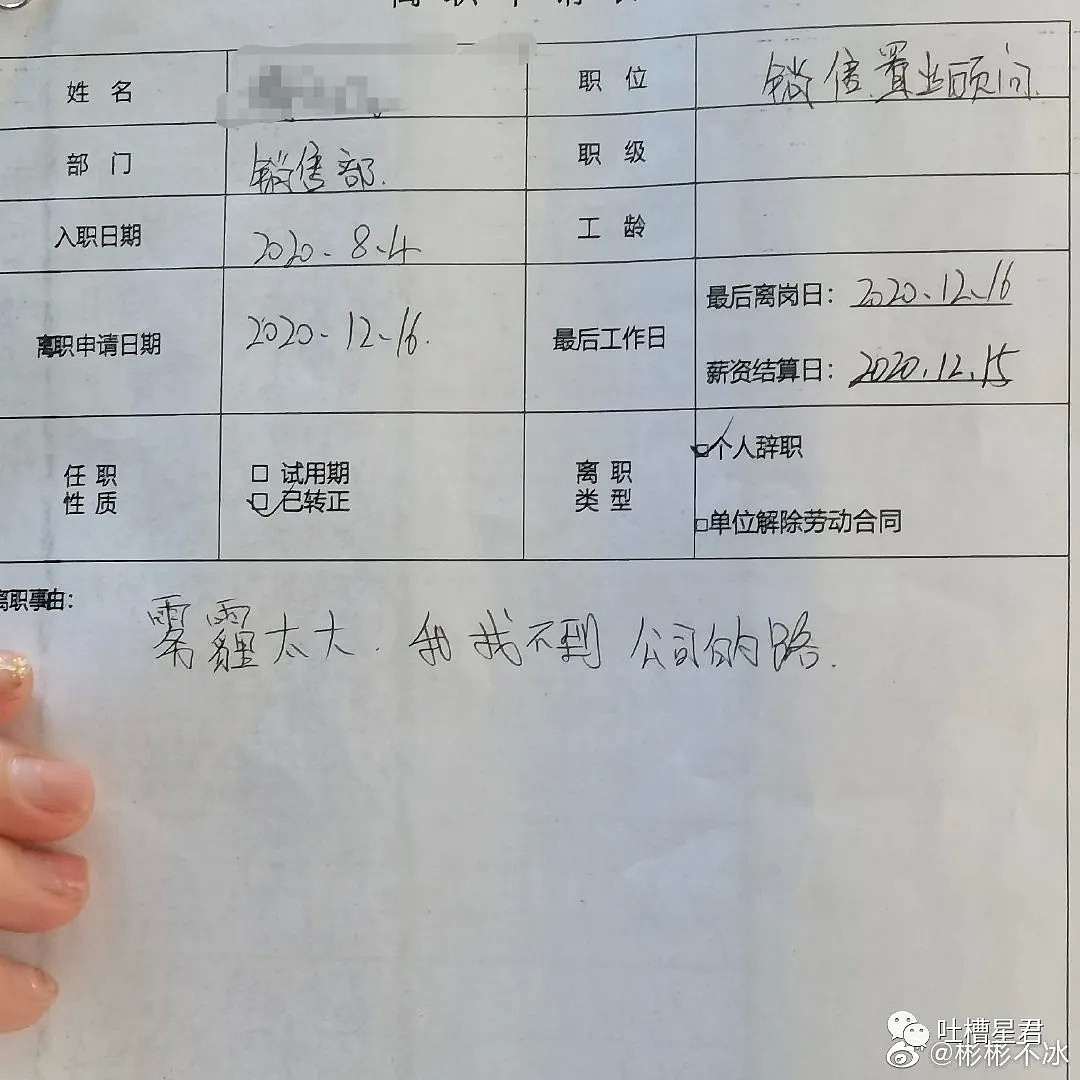 姓 名
职 位 销售置业顾问
部 门 销售部.
职 级
入职日期 2020.8.4
工 龄
离职申请日期 2020.12.16.
最后工作日 最后离岗日: 2020.12.16
薪资结算日: 2020.12.15
任 职
性 质
□ 试用期
□ 已转正
离 职
类 型
□个人辞职
□单位解除劳动合同
离职事由:
雾霾太大.我找不到公司的路.
吐槽星君
@彬彬不冰